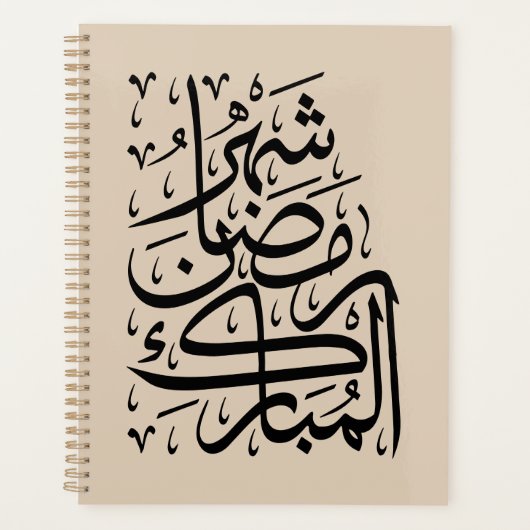 شهر
رمضان
المُبارك